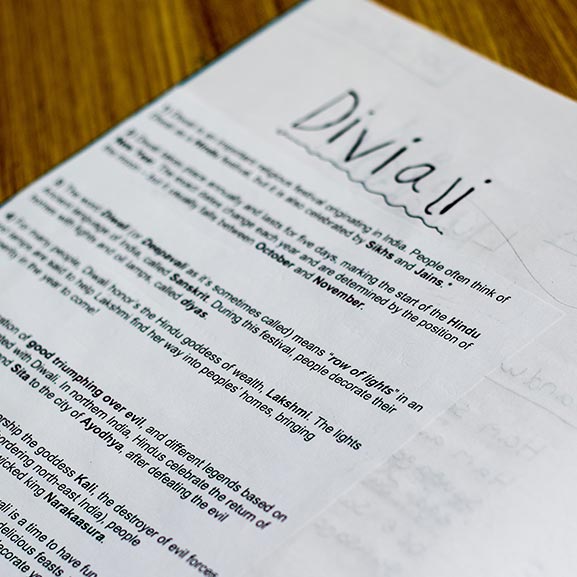 Diviali
1) Diwali is an important religious festival originating in India. People often think of
Diwali as a Hindu festival, but it is also celebrated by Sikhs and Jains.*
2) Diwali takes place annually and lasts for five days, marking the start of the Hindu
New Year. The exact dates change each year and are determined by the position of
the moon – but it usually falls between October and November.
3) The word Diwali (or Deepavali as it's sometimes called) means "row of lights" in an
ancient language of India, called Sanskrit. During this festival, people decorate their
homes with lights and oil lamps, called diyas.
4) For many people, Diwali honor's the Hindu goddess of wealth, Lakshmi. The lights
lamps are said to help Lakshmi find her way into peoples' homes, bringing
in the year to come!
of good triumphing over evil, and different legends based on
with Diwali. In northern India, Hindus celebrate the return of
Sita to the city of Ayodhya, after defeating the evil
the goddess Kali, the destroyer of evil forces
north-east India), people
wicked king Narakaasura.
is a time to have fun
delicious feasts